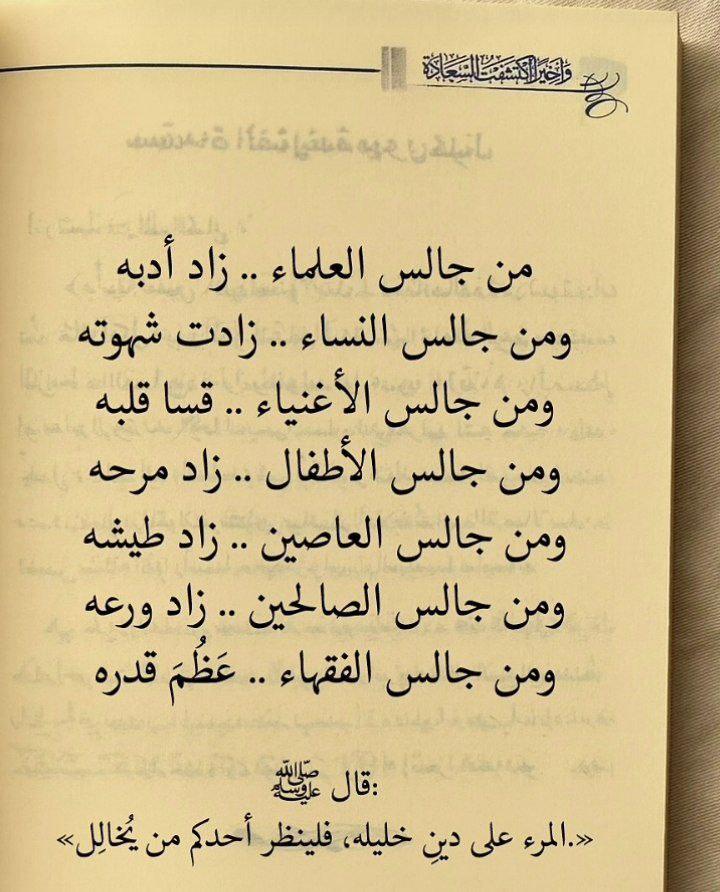 وأخيرا اكتشفت السعادة
من جالس العلماء .. زاد أدبه
ومن جالس النساء .. زادت شهوته
ومن جالس الأغنياء .. قسا قلبه
ومن جالس الأطفال .. زاد مرحه
ومن جالس العاصين .. زاد طيشه
ومن جالس الصالحين .. زاد ورعه
ومن جالس الفقهاء .. عَظُمَ قدره
قال ﷺ:
«المرء على دينِ خليله، فلينظر أحدكم من يُخالِل.»